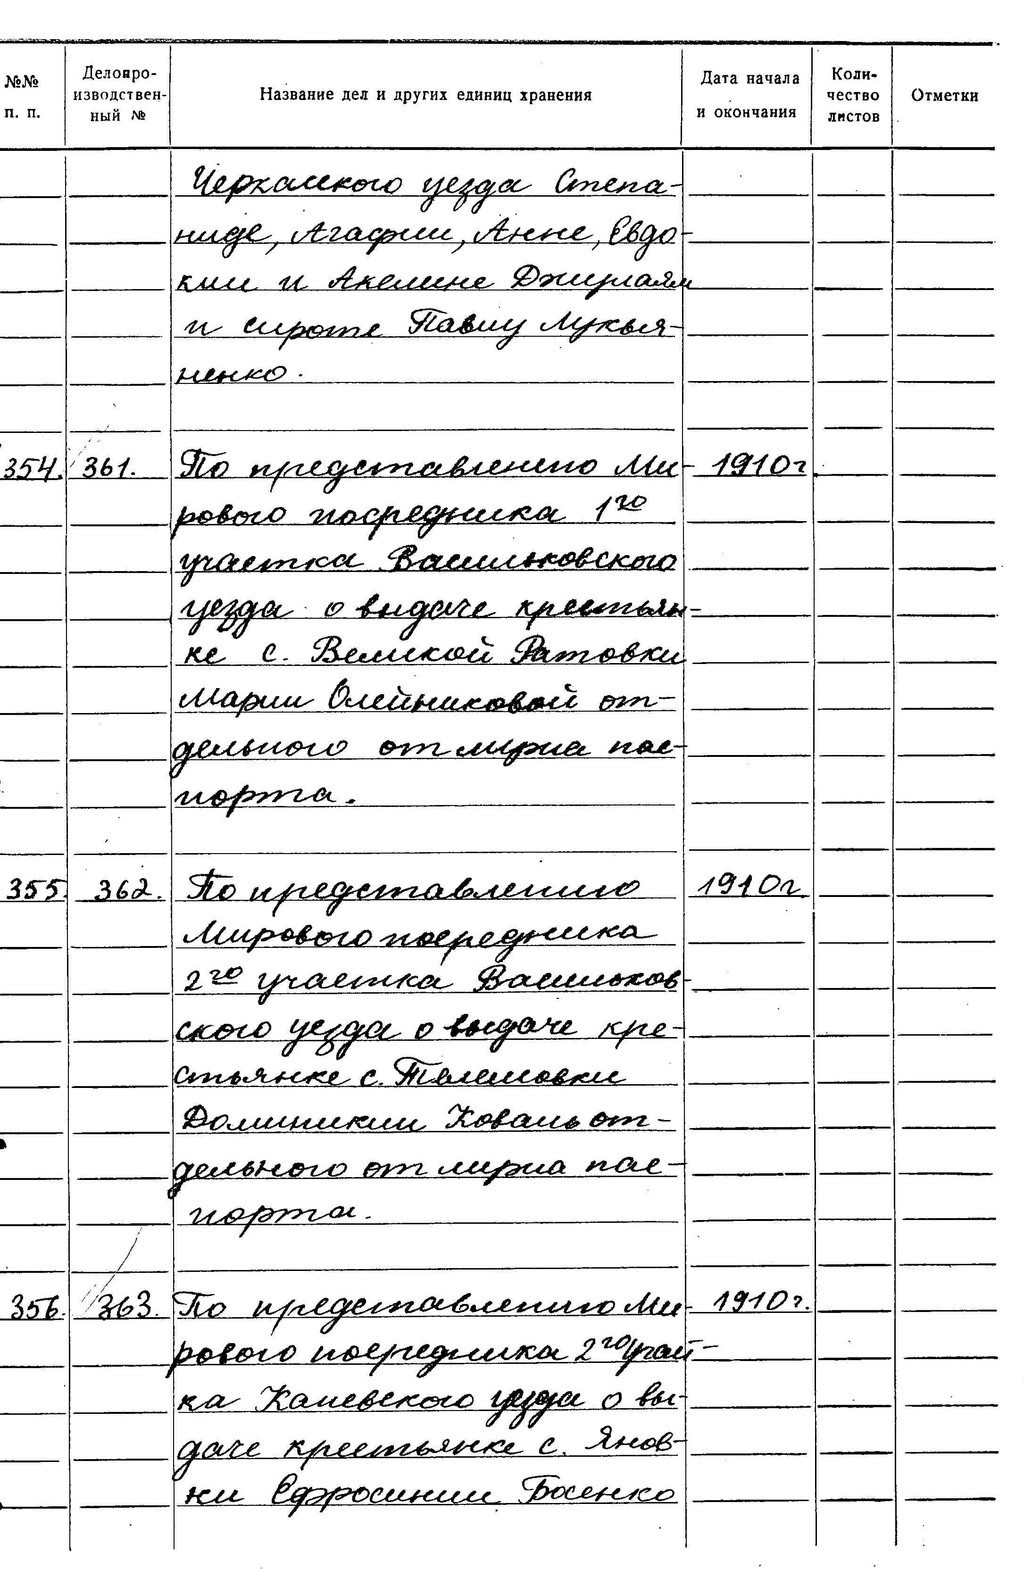 №№ п. п. Делопроизводствен- ный № Название дел и других единиц хранения Дата начала и окончания Коли- чество листов Отметки
Черкасского уезда Степа-
ниде, Агафии, Анне, Евдо-
кии и Акелине Джулаям
и сироте Павлу Лукья-
ненко.
354. 361. По представлению Ми- 1910 г.
рового посредника 1го
участка Васильковского
уезда о выдаче крестьян-
ке с. Великой Ратовки
Марии Олейниковой от-
дельного от мужа пас-
порта.
355. 362. По представлению 1910 г.
Мирового посредника
2го участка Васильков-
ского уезда о выдаче кре-
стьянке с. Телешовки
Доминикии Коваль от-
дельного от мужа пас-
порта.
356. 363. По представлению Ми- 1910 г.
рового посредника 2го участ-
ка Каневского уезда о вы-
даче крестьянке с. Янов-
ки Ефросинии Босенко